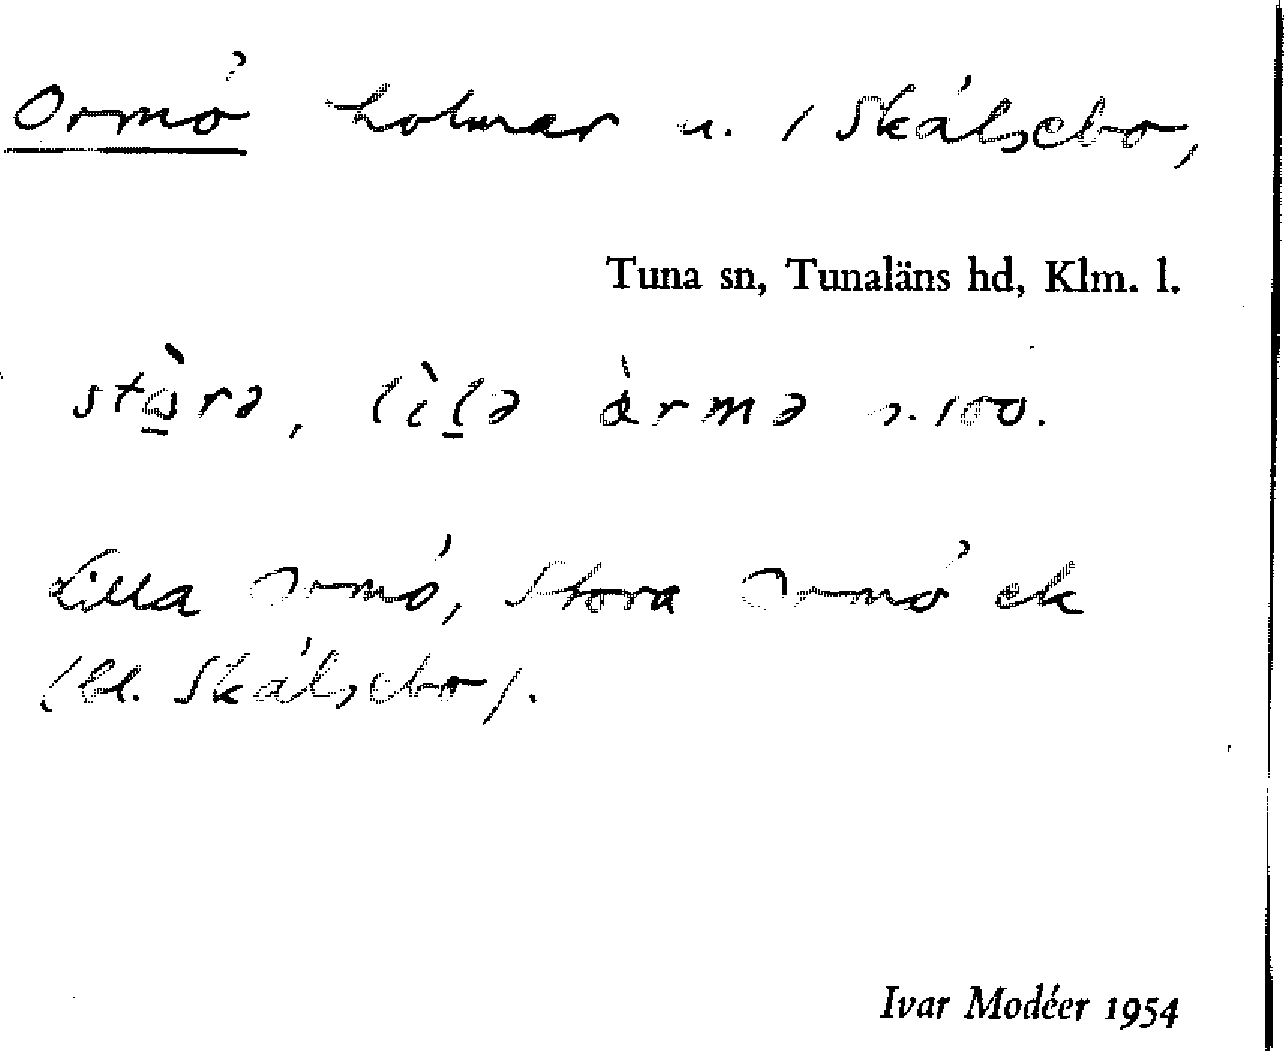 Ormö holmar u. / Skälsebo,
Tuna sn, Tunaläns hd, Klm. l.
stòrə, lìlə àrmə s. 100.
Lilla Ormö, Stora Ormö ek
(bl. Skälsebo).
Ivar Modéer 1954